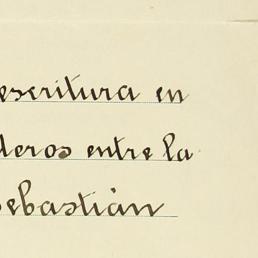 escritura en
deros entre la
Sebastián